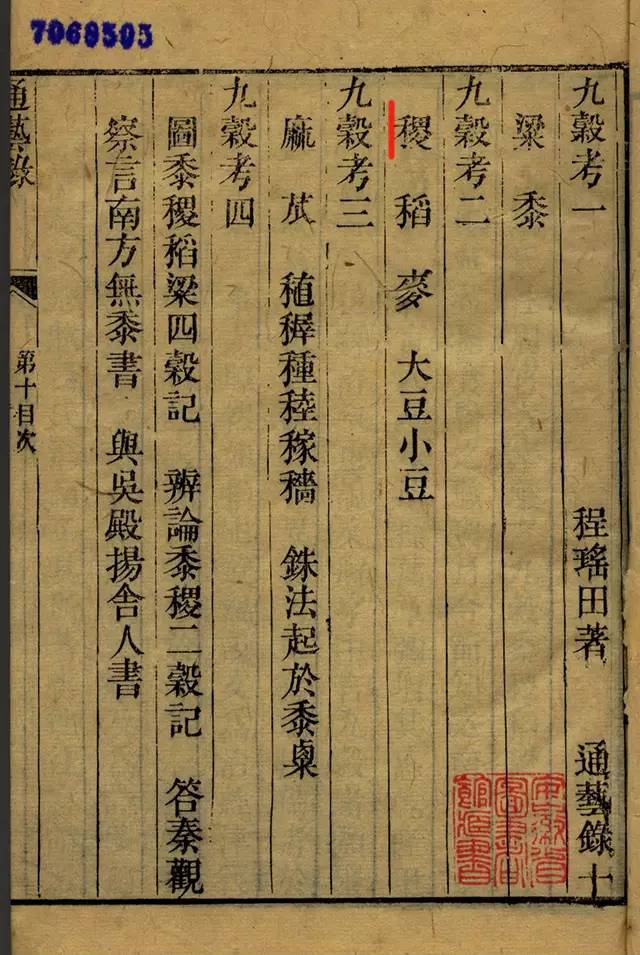 7069505
九穀考一 程瑤田著 通藝錄十
粱 黍
九穀考二
稷 稻 麥 大豆小豆
九穀考三
麻 苽 稙稺種稑稼穡 銖法起於黍㮚
九穀考四
圖黍稷稻粱四穀記 辨論黍稷二穀記 答秦觀
察言南方無黍書 與吳殿揚舍人書
通藝錄
第十目次
安徽省
圖書館
藏書